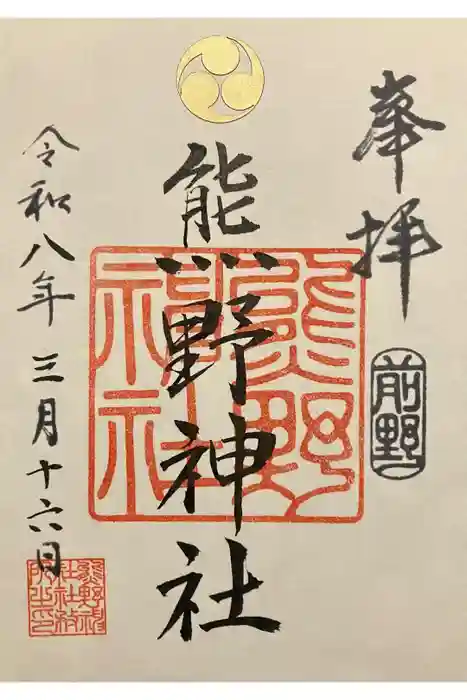 奉拝
前野
熊野神社
熊野神社
令和八年三月十六日
熊野神社社務所之印